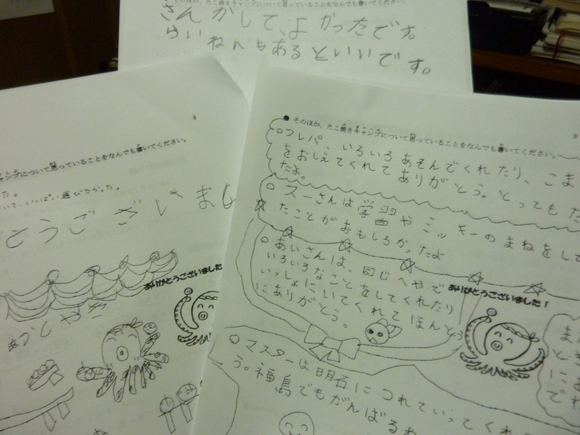 さんかして、よかったです。
らいねんもあるといいです。
●そのほか、たこ焼きキャンプについて思っていることをなんでも書いてください。
○フレパ、いろいろあそんでくれたり、こま
をおしえてくれてありがとう。とってもた
たよ。
○プーさんは学習やミッキーのまねをして
たことがおもしろかったよ
○あいさんは、同じへやで
いろいろなことをしてくれたり
いっしょにいてくれてほんとう
にありがとう。
ありがとうございました!
○マスターは明石につれていってくれ
う。福島でもがんばるね
キャンプについて思っていることをなんでも書いてください。
とうございま
ありがとうございました